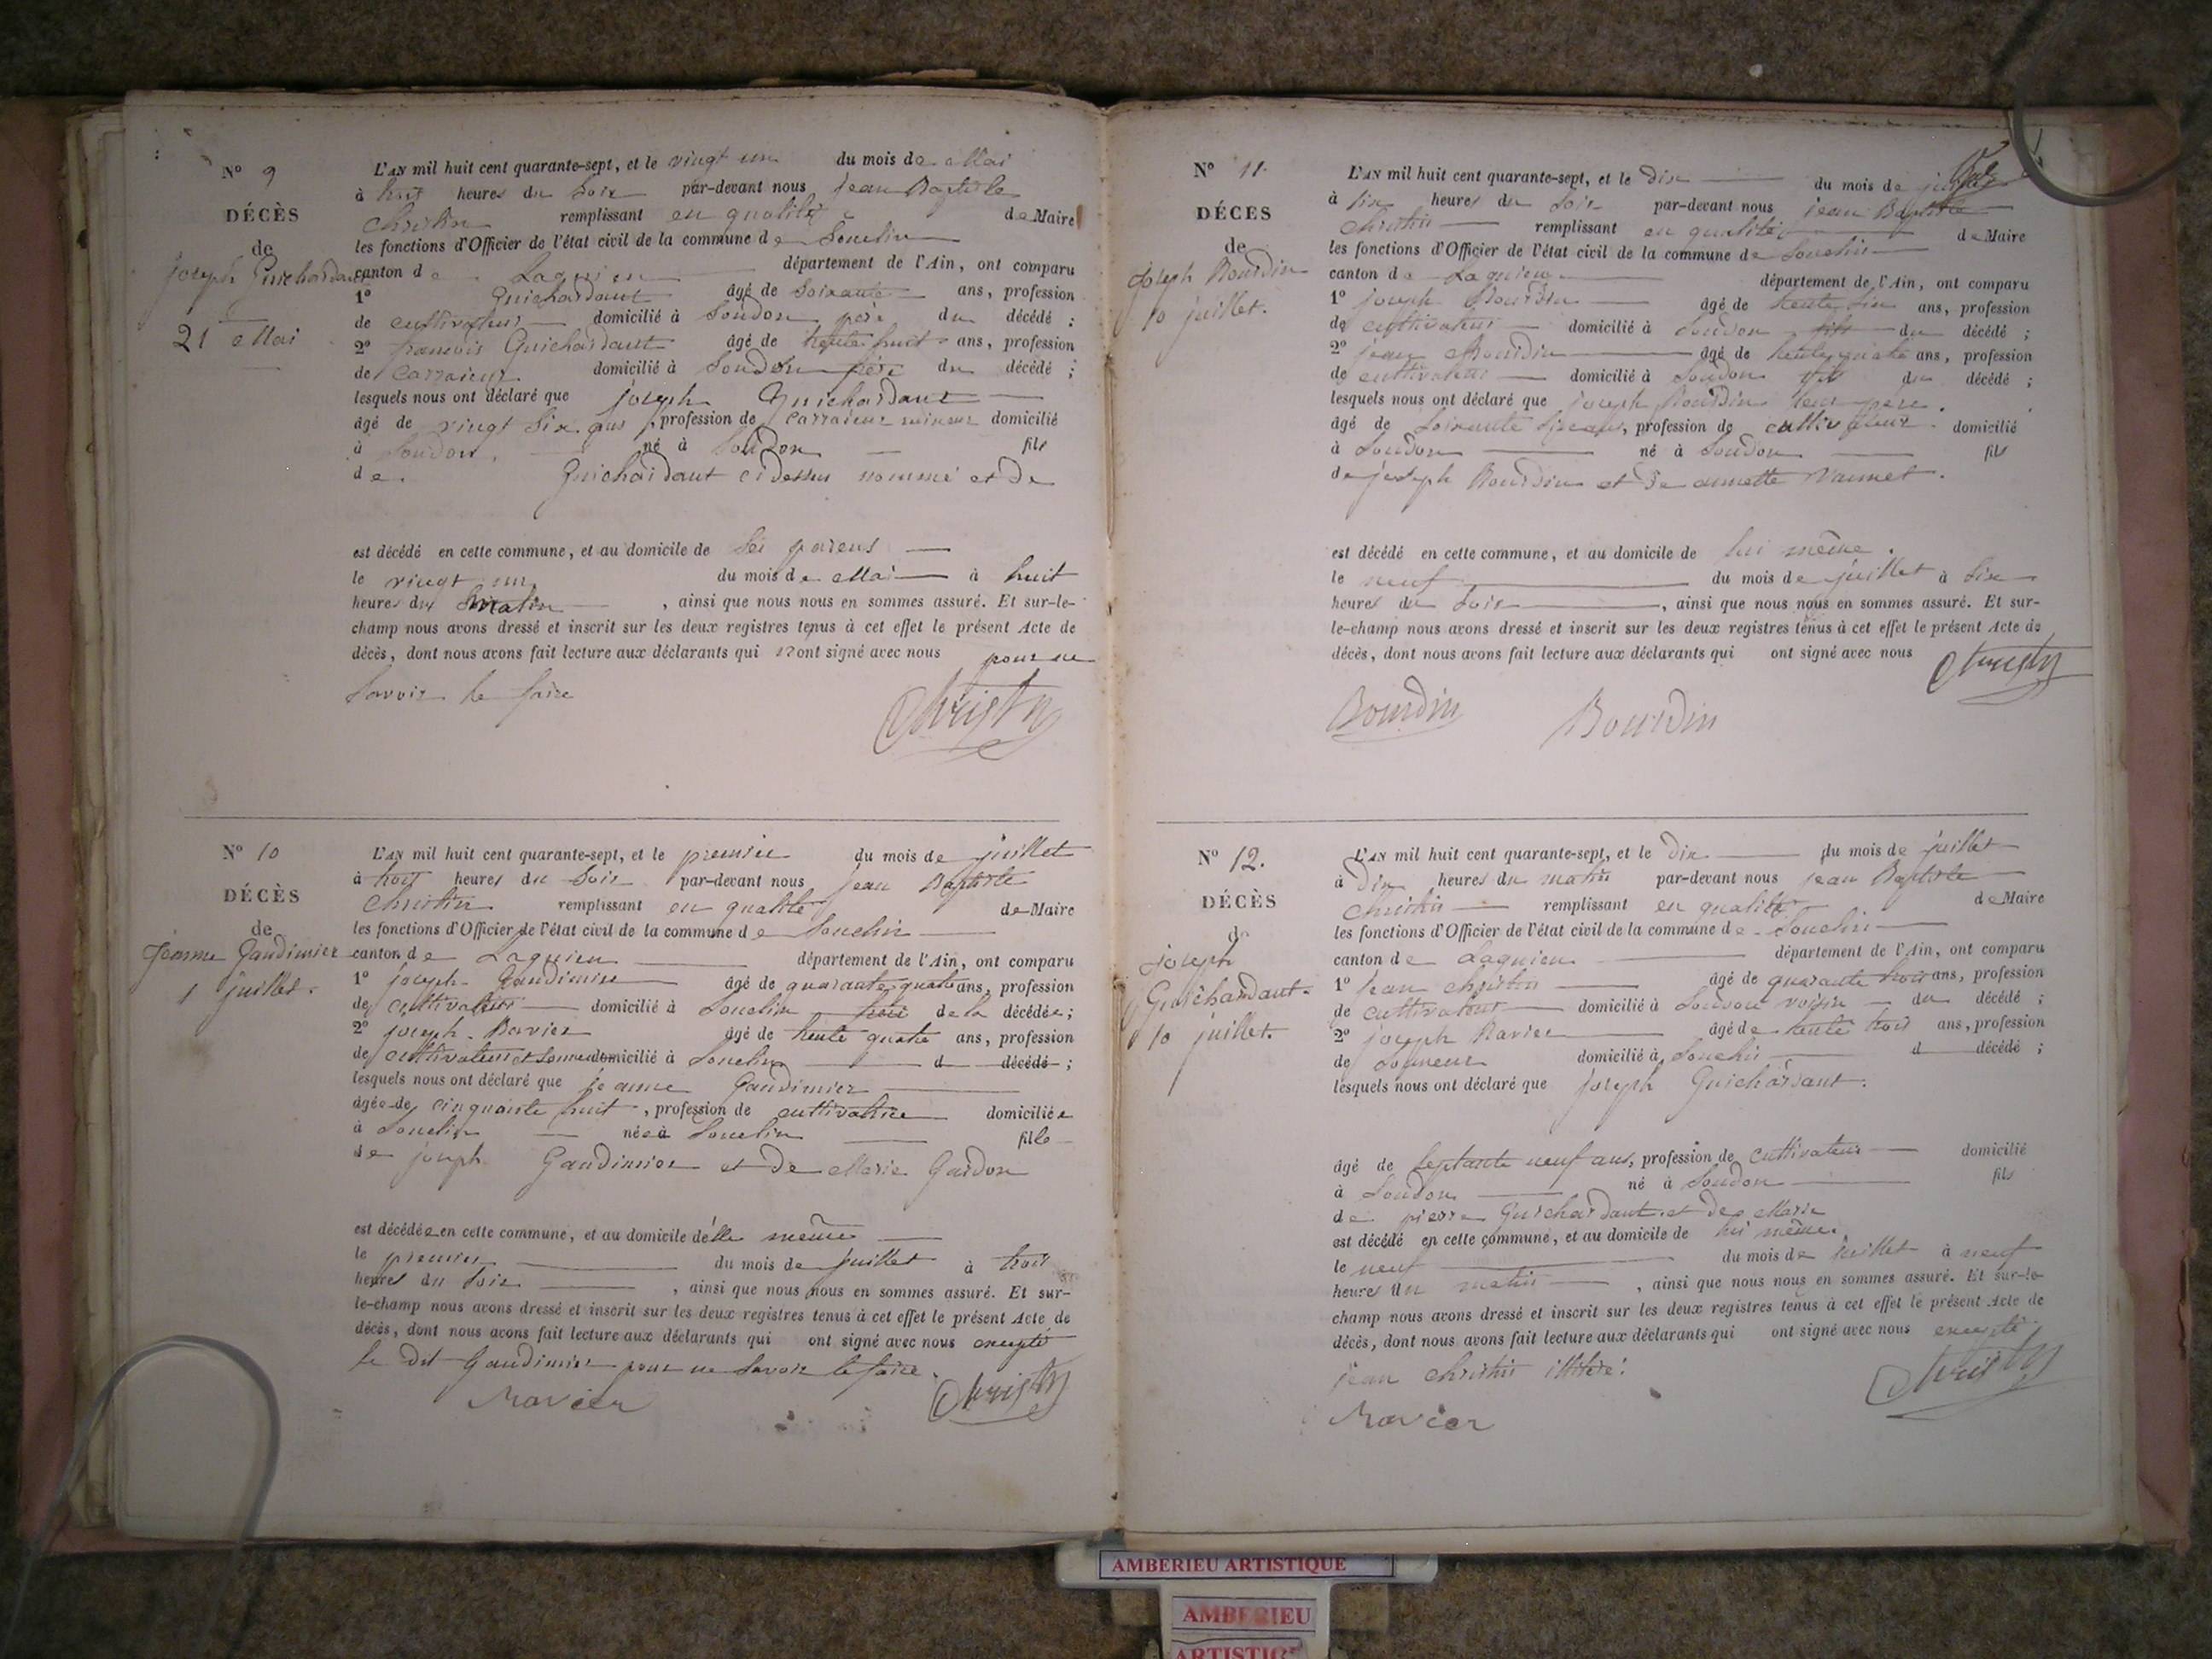 N° 9
DÉCÈS
de
joseph Guichardant
21 Mai
L'AN mil huit cent quarante-sept, et le vingt un du mois de Mai
à huit heures du soir par-devant nous jean Baptiste
christin remplissant en qualité de Maire
les fonctions d'Officier de l'état civil de la commune de Souclin
canton de Lagnieu département de l'Ain, ont comparu
1° Guichardant âgé de soixante ans, profession
de cultivateur domicilié à Soudon père du décédé ;
2° francois Guichardant âgé de trente huit ans, profession
de carraieur domicilié à Soudon frère du décédé ;
lesquels nous ont déclaré que joseph Guichardant
âgé de vingt six ans, profession de carraieur mineur domicilié
à Soudon, né à Soudon fils
de Guichardant ci dessus nommé et de
est décédé en cette commune, et au domicile de ses parens
le vingt un du mois de Mai à huit
heures du matin, ainsi que nous nous en sommes assuré. Et sur-le-
champ nous avons dressé et inscrit sur les deux registres tenus à cet effet le présent Acte de
décès, dont nous avons fait lecture aux déclarants qui n'ont signé avec nous pour ne
savoir le faire
Christin
N° 10
DÉCÈS
de
Jeanne Gaudimier
1 juillet.
L'AN mil huit cent quarante-sept, et le premier du mois de juillet
à trois heures du soir par-devant nous jean Baptiste
christin remplissant en qualité de Maire
les fonctions d'Officier de l'état civil de la commune de Souclin
canton de Lagnieu département de l'Ain, ont comparu
1° joseph Gaudimier âgé de quarante quatre ans, profession
de cultivateur domicilié à Souclin frère de la décédée ;
2° joseph Ravier âgé de trente quatre ans, profession
de cultivateur et sonneur domicilié à Souclin d décédé ;
lesquels nous ont déclaré que jeanne Gaudimier
âgée de cinquante huit, profession de cultivatrice domiciliée
à Souclin née à Souclin fille
de joseph Gaudimier et de Marie Gardon
est décédée en cette commune, et au domicile d'elle même
le premier du mois de juillet à trois
heures du soir, ainsi que nous nous en sommes assuré. Et sur-
le-champ nous avons dressé et inscrit sur les deux registres tenus à cet effet le présent Acte de
décès, dont nous avons fait lecture aux déclarants qui ont signé avec nous excepté
le dit Gaudimier pour ne savoir le faire.
Ravier Christin
N° 11.
DÉCÈS
de
Joseph Bourdin
10 juillet.
L'AN mil huit cent quarante-sept, et le dix du mois de juillet
à six heures du soir par-devant nous jean Baptiste
christin remplissant en qualité de Maire
les fonctions d'Officier de l'état civil de la commune de Souclin
canton de Lagnieu département de l'Ain, ont comparu
1° joseph Bourdin âgé de trente six ans, profession
de cultivateur domicilié à Soudon fils du décédé ;
2° jean Bourdin âgé de trente quatre ans, profession
de cultivateur domicilié à Soudon fils du décédé ;
lesquels nous ont déclaré que joseph Bourdin leur père.
âgé de soixante six ans, profession de cultivateur. domicilié
à Soudon né à Soudon fils
de joseph Bourdin et de annette Vannet.
est décédé en cette commune, et au domicile de lui même.
le neuf du mois de juillet à six
heures du soir, ainsi que nous nous en sommes assuré. Et sur-
le-champ nous avons dressé et inscrit sur les deux registres tenus à cet effet le présent Acte de
décès, dont nous avons fait lecture aux déclarants qui ont signé avec nous
Christin
Bourdin Bourdin
N° 12.
DÉCÈS
de
joseph
Guichardant.
10 juillet.
L'AN mil huit cent quarante-sept, et le dix du mois de juillet
à dix heures du matin par-devant nous jean Baptiste
christin remplissant en qualité de Maire
les fonctions d'Officier de l'état civil de la commune de Souclin
canton de Lagnieu département de l'Ain, ont comparu
1° jean christin âgé de quarante trois ans, profession
de cultivateur domicilié à Soudon voisin du décédé ;
2° joseph Ravier âgé de trente trois ans, profession
de sonneur domicilié à Souclin d décédé ;
lesquels nous ont déclaré que joseph Guichardant.
âgé de septante neuf ans, profession de cultivateur domicilié
à Soudon né à Soudon fils
de pierre Guichardant et de Marie
est décédé en cette commune, et au domicile de lui même.
le neuf du mois de juillet à neuf
heures du matin, ainsi que nous nous en sommes assuré. Et sur-le-
champ nous avons dressé et inscrit sur les deux registres tenus à cet effet le présent Acte de
décès, dont nous avons fait lecture aux déclarants qui ont signé avec nous excepté
jean christin illitéré.
Christin
Ravier
AMBERIEU ARTISTIQUE
AMBERIEU
ARTISTIQUE